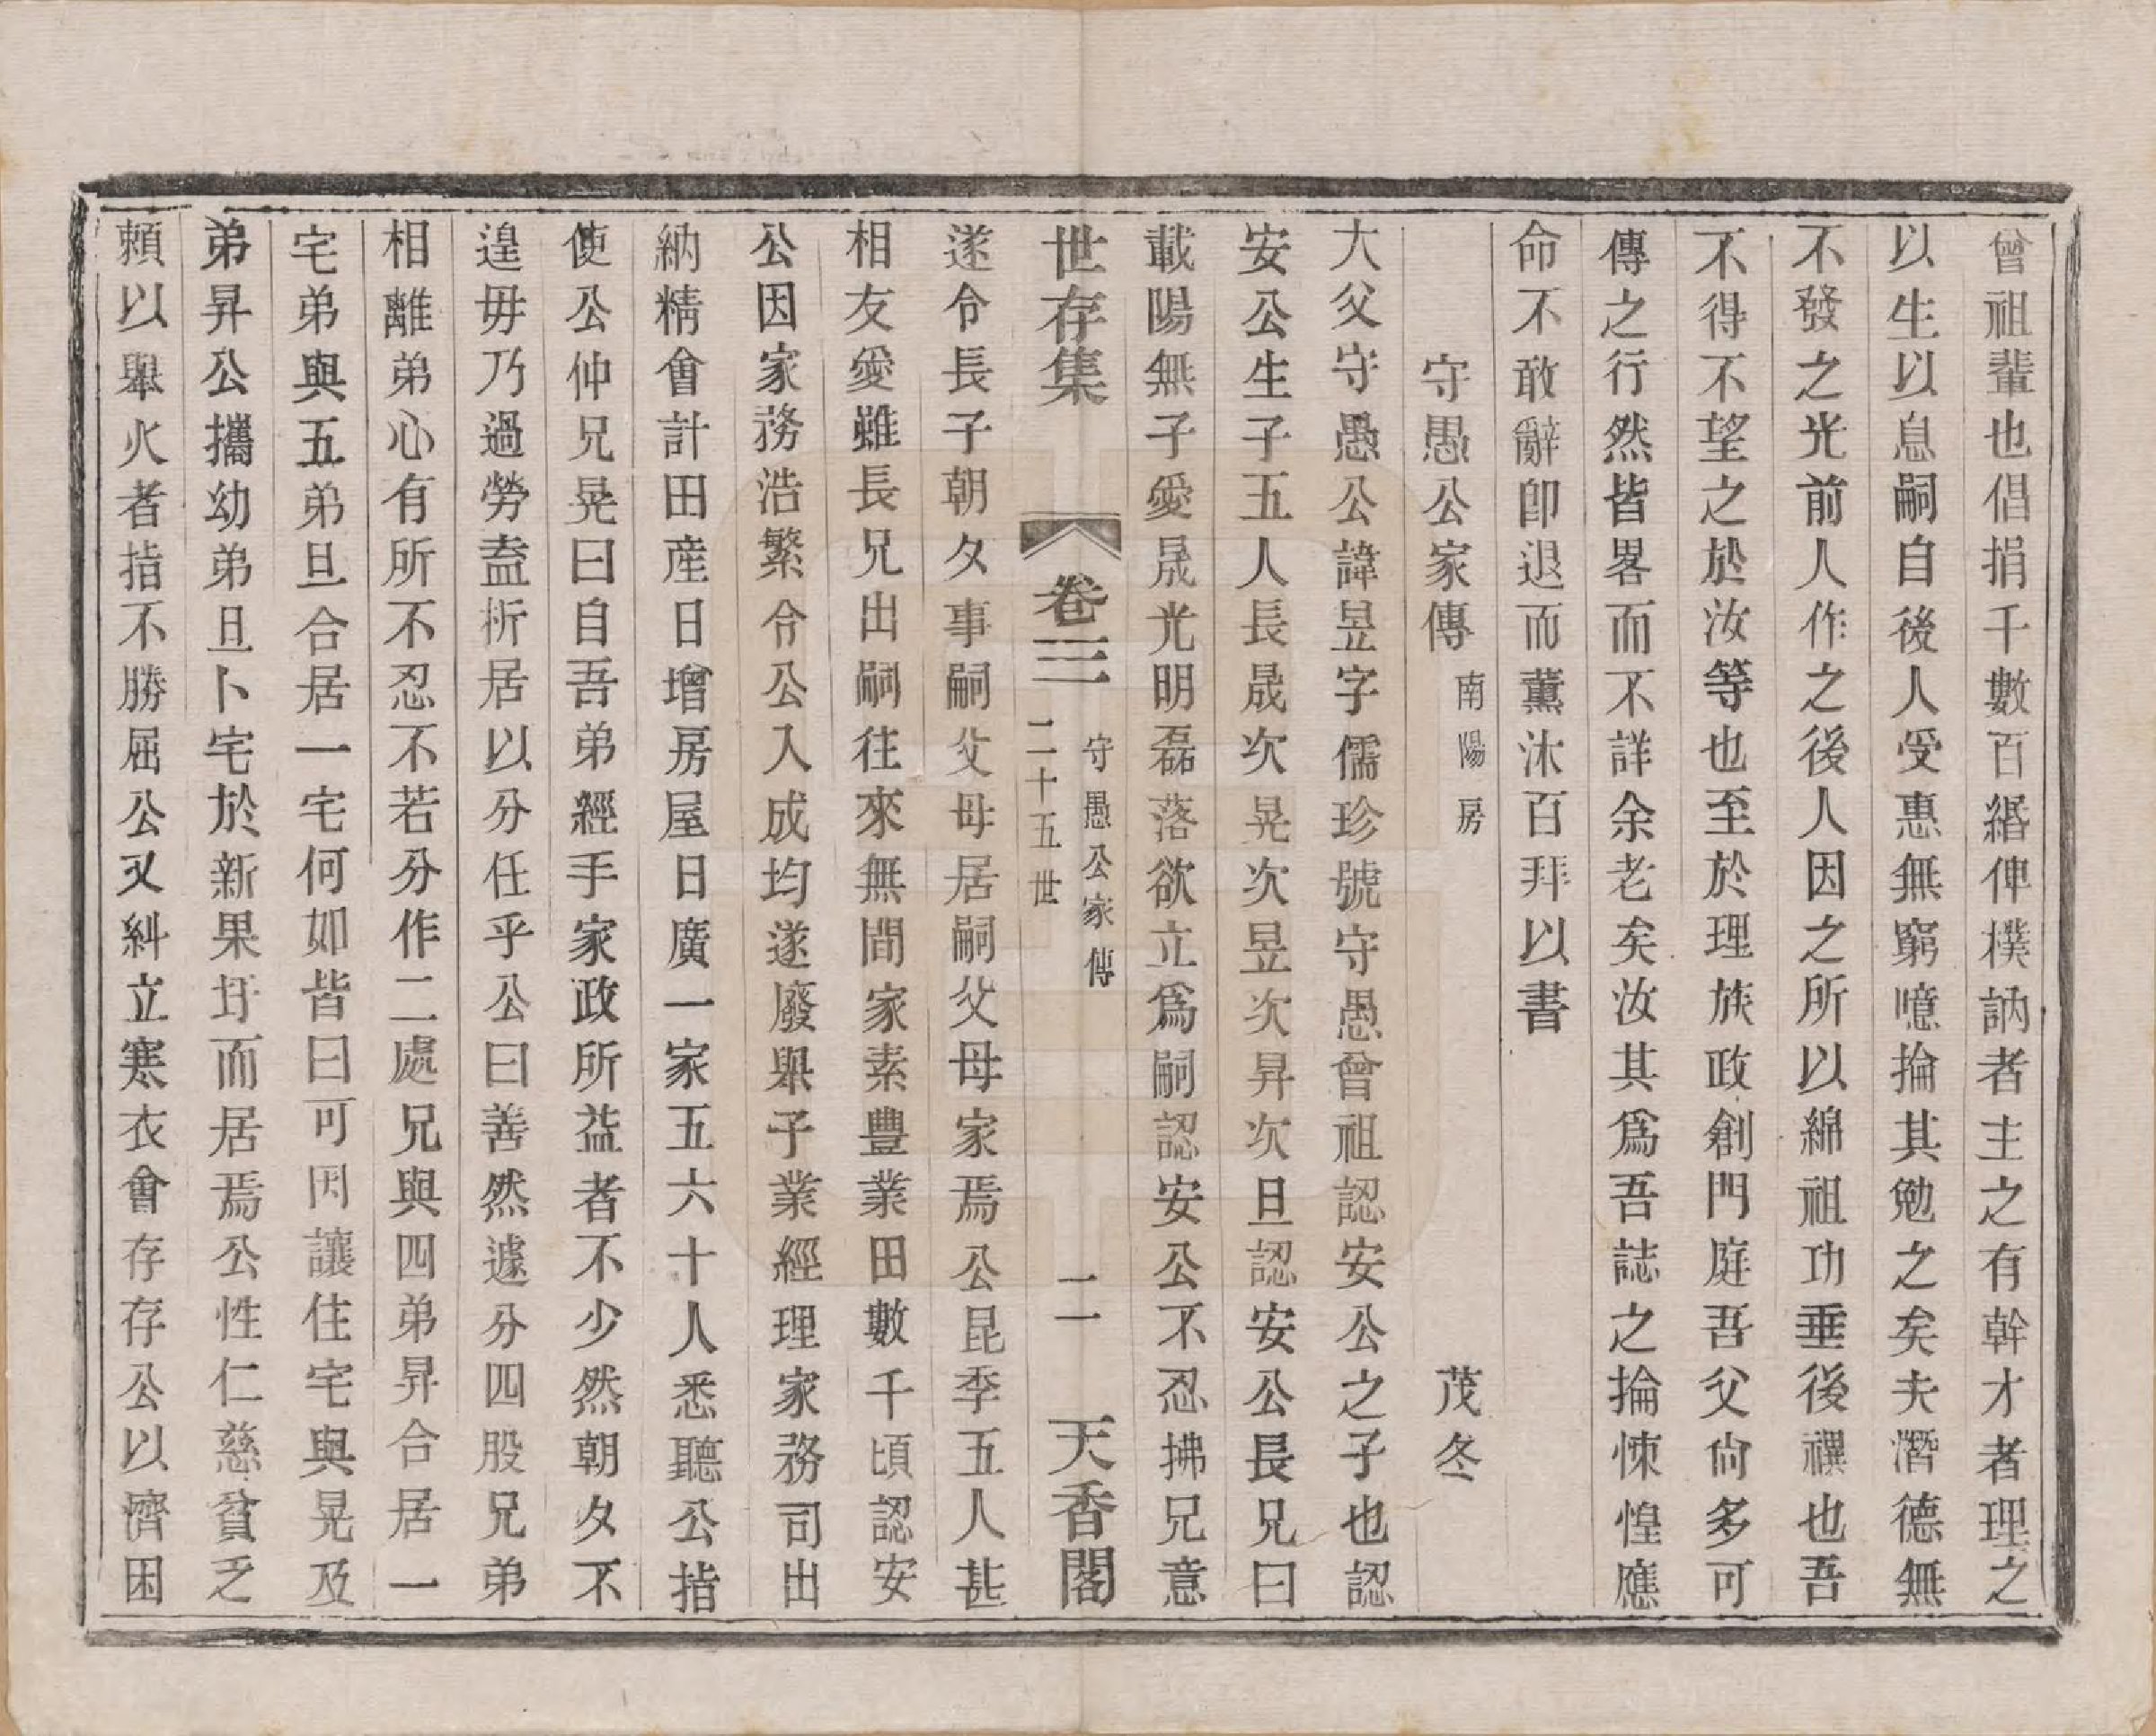 曾祖輩也倡捐千數百緡俾樸訥者主之有幹才者理之
以生以息嗣自後人受惠無窮噫掄其勉之矣夫潛德無
不發之光前人作之後人因之所以綿祖功垂後禩也吾
不得不望之於汝等也至於理族政創門庭吾父尙多可
傳之行然皆畧而不詳余老矣汝其爲吾誌之掄悚惶應
命不敢辭卽退而薰沐百拜以書
守愚公家傳 南陽房 茂冬
大父守愚公諱昱字儒珍號守愚曾祖認安公之子也認
安公生子五人長晟次晃次昱次昇次旦認安公長兄曰
載陽無子愛晟光明磊落欲立爲嗣認安公不忍拂兄意
世存集 卷三 守愚公家傳 二十五世 二 天香閣
遂令長子朝夕事嗣父母居嗣父母家焉公昆季五人甚
相友愛雖長兄出嗣往來無間家素豐業田數千頃認安
公因家務浩繁令公入成均遂廢舉子業經理家務司出
納精會計田産日增房屋日廣一家五六十人悉聽公指
使公仲兄晃曰自吾弟經手家政所益者不少然朝夕不
遑毋乃過勞盍析居以分任乎公曰善然遽分四股兄弟
相離弟心有所不忍不若分作二處兄與四弟昇合居一
宅弟與五弟旦合居一宅何如皆曰可因讓住宅與晃及
弟昇公攜幼弟旦卜宅於新果圩而居焉公性仁慈貧乏
賴以舉火者指不勝屈公又糾立寒衣會存存公以濟困